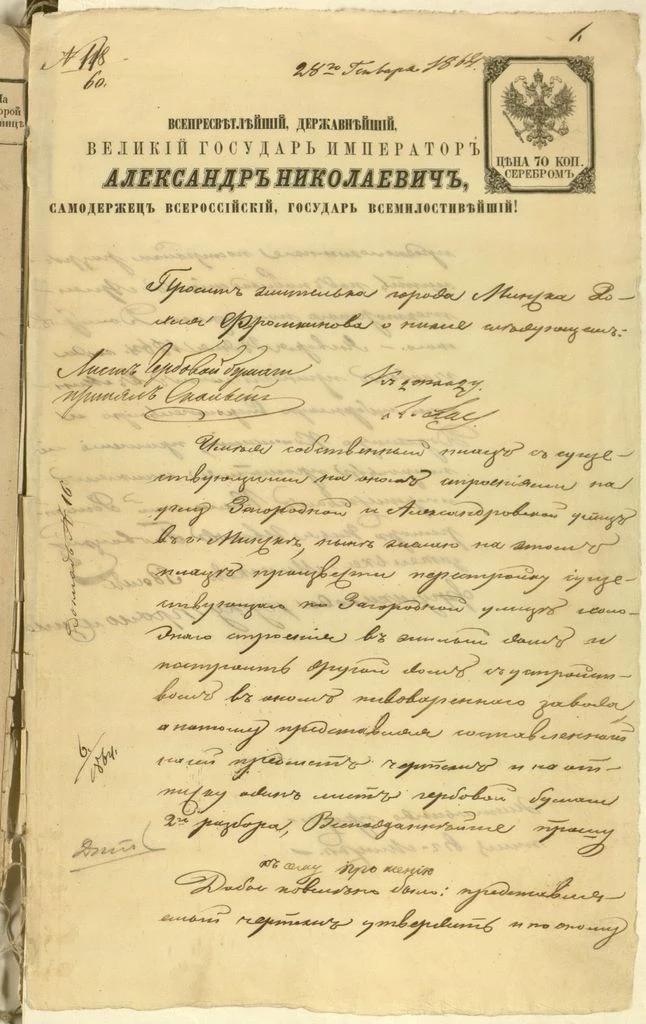 1.
N 118
60.
28го Генваря 1864.
ЦѢНА 70 КОП.
СЕРЕБРОМЪ
ВСЕПРЕСВѢТЛѢЙШІЙ, ДЕРЖАВНѢЙШІЙ,
ВЕЛИКІЙ ГОСУДАРЬ ИМПЕРАТОРЪ
АЛЕКСАНДРЪ НИКОЛАЕВИЧЪ,
САМОДЕРЖЕЦЪ ВСЕРОССІЙСКІЙ, ГОСУДАРЬ ВСЕМИЛОСТИВѢЙШІЙ!
Проситъ жителька города Минска
Фрумкинова о ниже слѣдующемъ:
Листъ Гербовой бумаги
принялъ
Къ докладу.
Имѣя собственный плацъ съ суще-
ствующими на ономъ строеніями на
углу Загородной и Александровской улицъ
въ г. Минскѣ, нынѣ желаю на этомъ
плацѣ произвести перестройку суще-
ствующаго по Загородной улицѣ холо-
днаго строенія въ жилый домъ и
построить другой домъ съ устройст-
вомъ въ ономъ пивовареннаго завода,
а потому представляя составленный
на сей предметъ чертежъ и на от-
писку одинъ листъ гербовой бумаги
2го разбора, Всеподданнѣйше прошу
къ сему прошенію
Дабы повелѣно было: представляе-
мый чертежъ утвердить и по оному
6/1864.